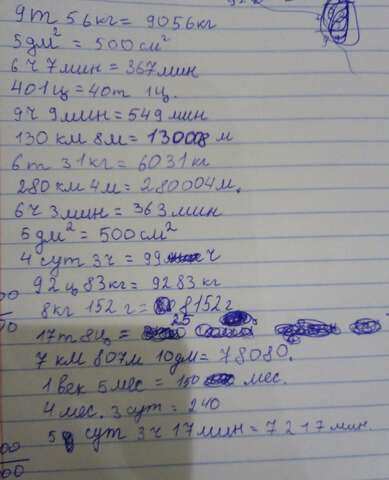 9т 56кг = 9056кг
5дм² = 500см²
6ч 7мин = 367мин
401ц = 40т 1ц.
9ч 9мин = 549мин
130 км 8м = 130008 м
6т 31кг = 6031кг
280км 4м = 280004м.
6ч 3мин = 363мин
5дм² = 500см²
4 сут 3ч = 99 ч
92ц 83кг = 9283 кг
8кг 152 г = 8152г
17т 8ц = 25
7 км 807м 10дм = 78080.
1 век 5 мес = 150 мес.
4 мес. 3 сут = 240
5 сут 3ч 17мин = 7217мин.
00
00